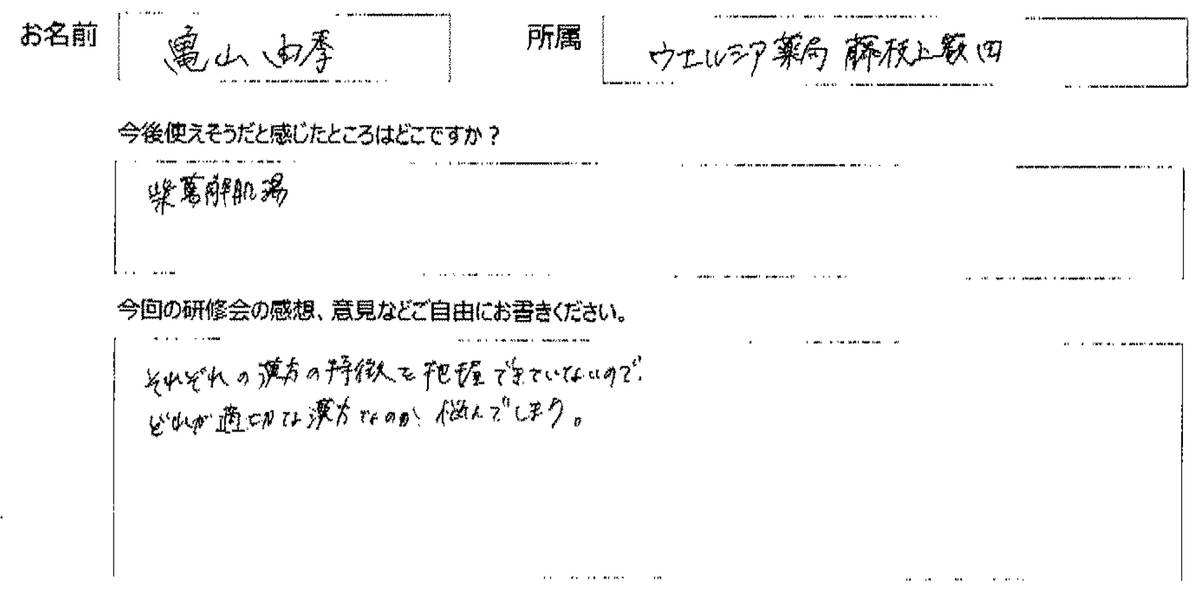 お名前 亀山 由季 所属 ウエルシア薬局 藤枝上薮田
今後使えそうだと感じたところはどこですか？
柴葛解肌湯
今回の研修会の感想、意見などご自由にお書きください。
それぞれの漢方の特徴を把握できていないので、
どれが適切な漢方なのか、悩んでしまう。